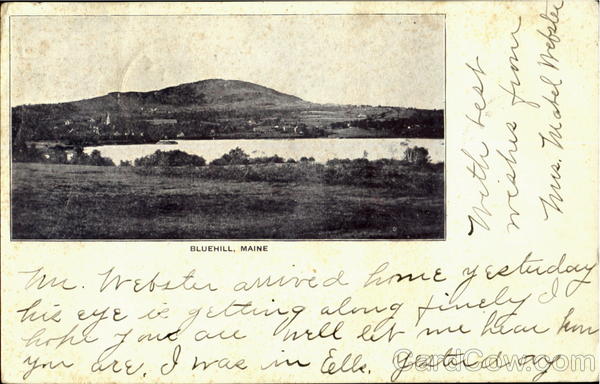 BLUEHILL, MAINE
With best
wishes from
Mrs. Mabel Webster
Mr. Webster arrived home yesterday
his eye is getting along finely I
hope you are well let me hear how
you are. I was in Ells.
CardCow.com